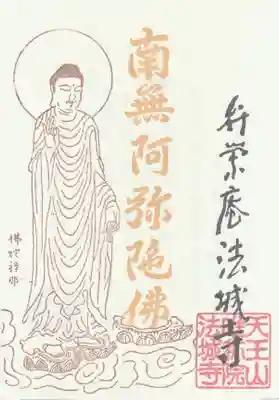 栄庵法城寺
南無阿弥陀佛
佛陀禅那
天王山
法城寺